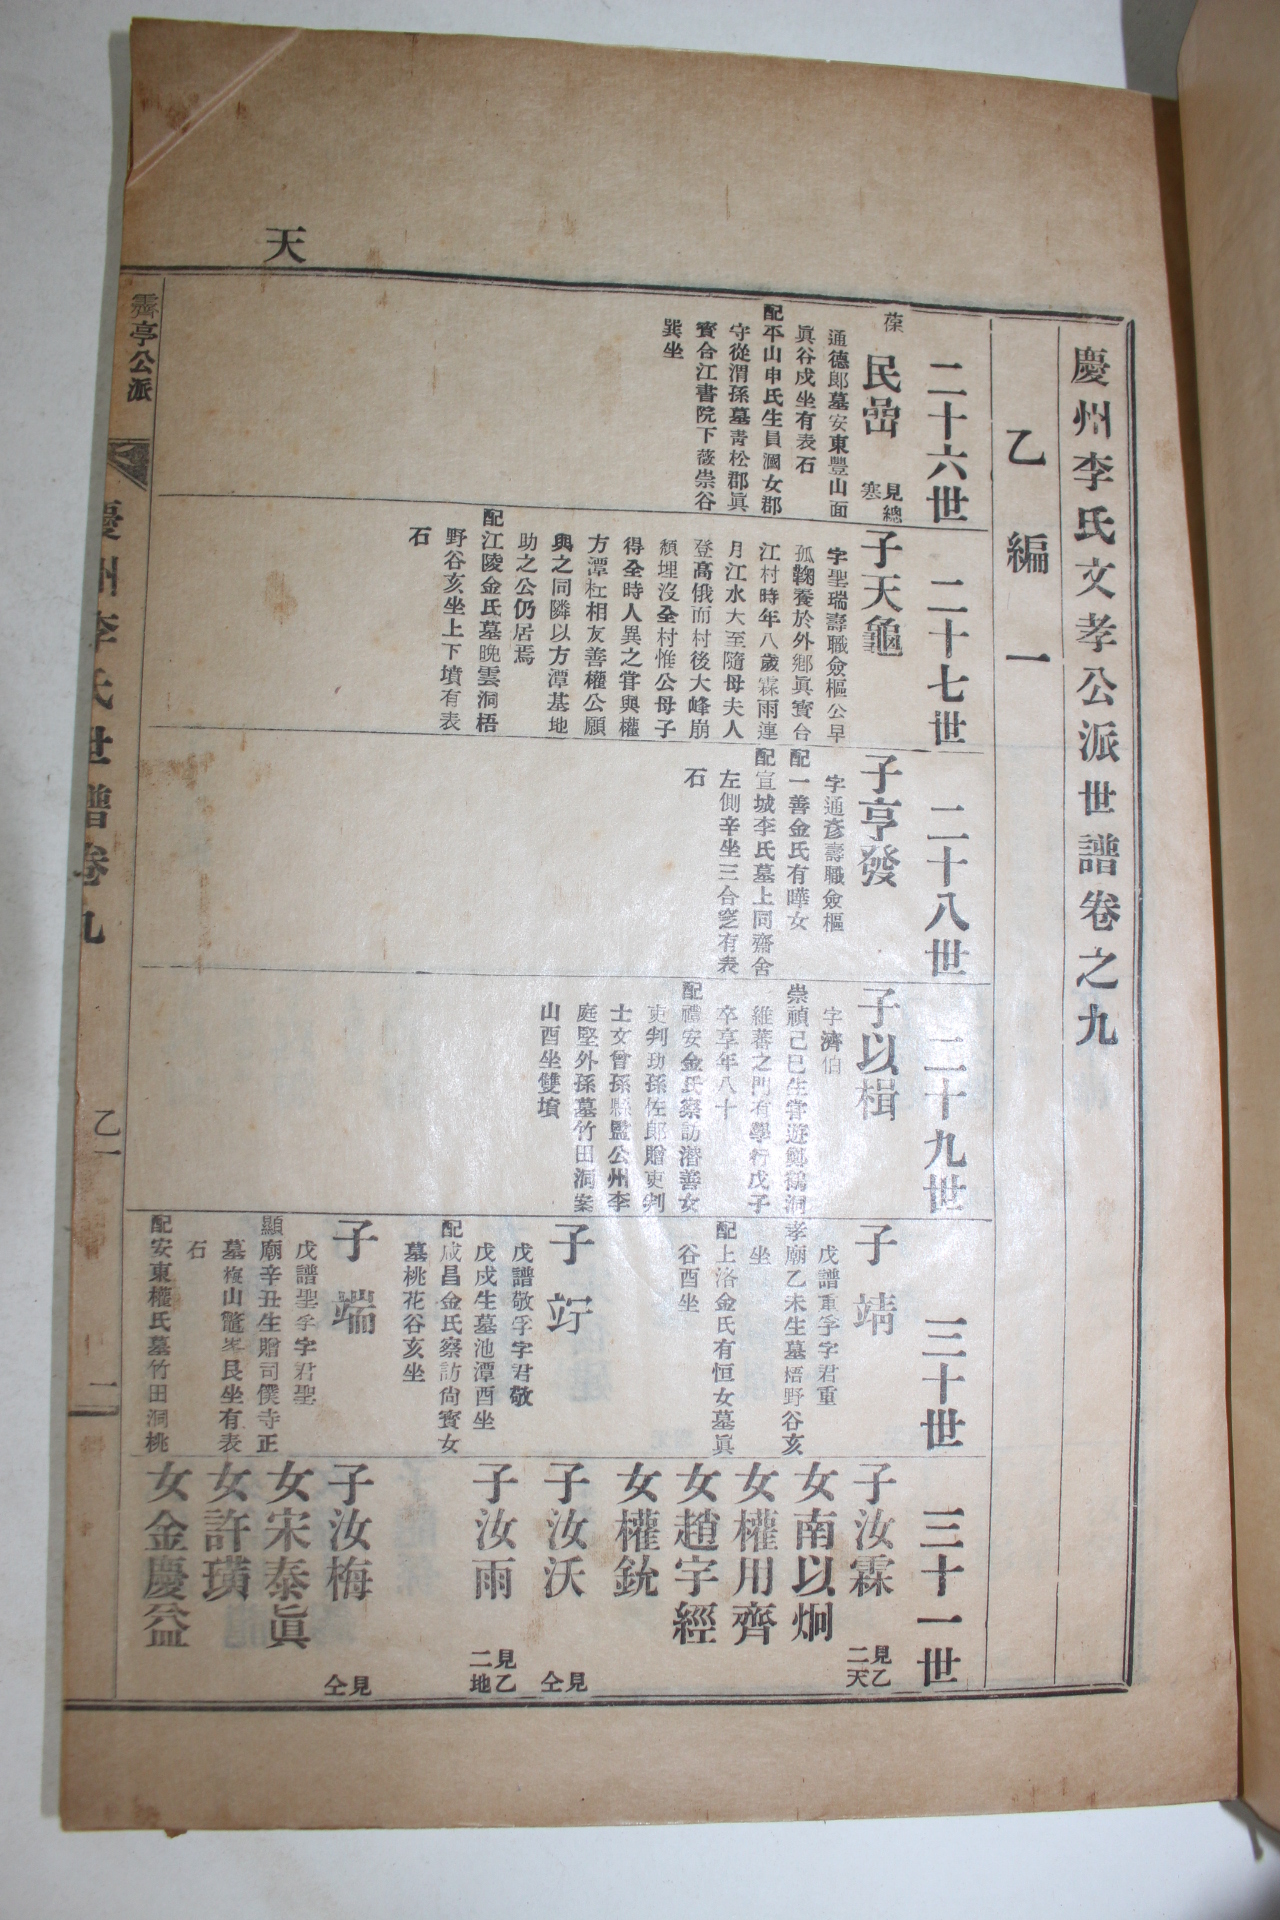 天
慶州李氏文孝公派世譜卷之九
乙編一
二十六世
葆
民嵒
見總
塞
通德郎墓安東豐山面
眞谷戍坐有表石
配平山申氏生員漍女郡
守從渭孫墓靑松郡眞
賓合江書院下薇崇谷
巽坐
二十七世
子天龜
字聖瑞壽職僉樞公早
孤鞠養於外鄕眞賓合
江村時年八歲霖雨連
月江水大至隨母夫人
登高俄而村後大峰崩
頹埋沒全村惟公母子
得全時人異之甞與權
方潭杠相友善權公願
與之同隣以方潭基地
助之公仍居焉
配江陵金氏墓晩雲洞梧
野谷亥坐上下墳有表
石
二十八世
子亨發
字通彦壽職僉樞
配一善金氏有曄女
配宣城李氏墓上同齋舍
左側辛坐三合窆有表
石
二十九世
子以楫
字濟伯
崇禎己巳生甞遊鄭鶴洞
維蕃之門有學行戊子
卒享年八十
配禮安金氏察訪潛善女
吏判玏孫佐郎贈吏判
士文曾孫縣監公州李
庭堅外孫墓竹田洞案
山酉坐雙墳
三十世
子靖
戊譜重孚字君重
孝廟乙未生墓梧野谷亥
坐
配上洛金氏有恒女墓眞
谷酉坐
子竚
戊譜敬孚字君敬
戊戌生墓池潭酉坐
配咸昌金氏察訪尙賓女
墓桃花谷亥坐
子端
戊譜聖孚字君聖
顯廟辛丑生贈司僕寺正
墓梅山鼈峯艮坐有表
石
配安東權氏墓竹田洞桃
三十一世
子汝霖
見乙
二天
女南以炯
女權用齊
女趙宇經
女權銃
子汝沃
見
仝
子汝雨
見乙
二地
子汝梅
見
仝
女宋泰眞
女許璜
女金慶益
霽亭公派
慶州李氏世譜卷九
乙一
二